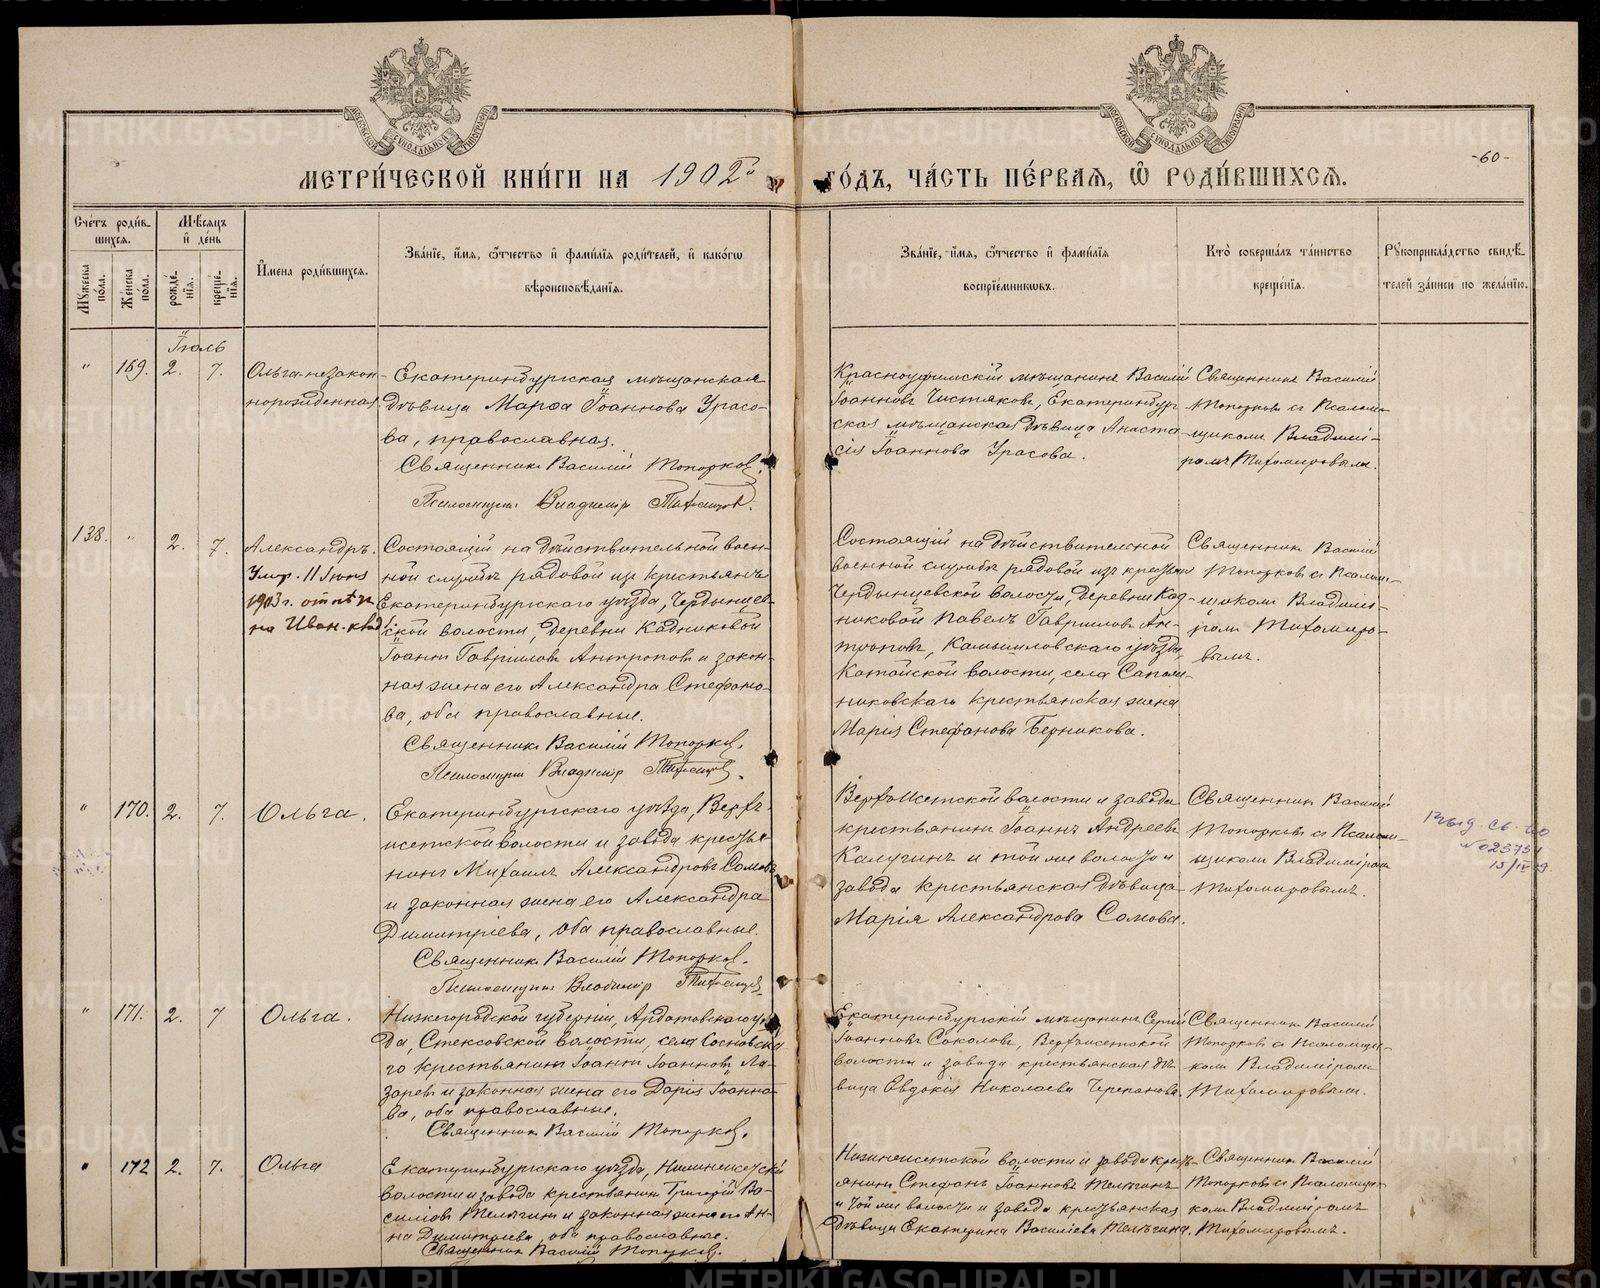 МОСКОВСКОЙ СѴНОДАЛЬНОЙ ТИПОГРАФІИ
МОСКОВСКОЙ СѴНОДАЛЬНОЙ ТИПОГРАФІИ
-60-
МЕТРИ́ЧЕСКОЙ КНИ́ГИ НА 1902й ГО́ДЪ, ЧА́СТЬ ПЕ́РВАЯ, Ѽ РОДИ́ВШИХСЯ.
Сче́тъ роди́вшихся.
Мѣ́сяцъ и҆ де́нь
Мꙋ́жеска по́ла.
Же́нска по́ла.
рожде́нїѧ.
креще́нїѧ.
И҆мена̀ роди́вшихсѧ.
Зва́нїе, и҆́мѧ, ѻ҆́тчество и҆ фамѝлїѧ роди́телей, и҆ како́гѡ вѣроисповѣ́данїѧ.
Зва́нїе, и҆́мѧ, ѻ҆́тчество и҆ фамѝлїѧ воспрїе́мникѡвъ.
Кто̀ соверша́лъ та́инство креще́нїѧ.
Рꙋкоприкла́дство свидѣ́телей за́писи по жела́нїю.
Іюль
" 169. 2. 7.
Ольга незакон-
норожденная.
Екатеринбургская мѣщанская
дѣвица Марѳа Іоаннова Урасо-
ва, православная.
Священникъ Василій Топорковъ.
Псаломщикъ Владиміръ Тихомировъ.
Красноуфимскій мѣщанинъ Василій
Іоанновъ Чистяковъ, Екатеринбург-
ская мѣщанская дѣвица Анаста-
сія Іоаннова Урасова.
Священникъ Василій
Топорковъ съ Псалом-
щикомъ Владимі-
ромъ Тихомировымъ.
138. " 2. 7.
Александръ.
Умер. 11 Іюня
1903 г. отпѣт
на Иван. клад.
Состоящій на дѣйствительной воен-
ной службѣ рядовой изъ крестьянъ
Екатеринбургскаго уѣзда, Чердынцев-
ской волости, деревни Кадниковой
Іоаннъ Гавріиловъ Антроповъ и закон-
ная жена его Александра Стефано-
ва, оба православные.
Священникъ Василій Топорковъ.
Псаломщикъ Владиміръ Тихомировъ.
Состоящій на дѣйствительной
военной службѣ рядовой изъ крестьянъ
Чердынцевской волости, деревни Кад-
никовой Павелъ Гавріиловъ Ан-
троповъ, Камышловскаго уѣзда,
Катайской волости, села
крестьянская жена
Марія Стефанова Берникова.
Священникъ Василій
Топорковъ съ Псалом-
щикомъ Владимі-
ромъ Тихомиро-
вымъ.
" 170. 2. 7.
Ольга.
Екатеринбургскаго уѣзда, Верхъ-
исетской волости и завода крестья-
нинъ Михаилъ Александровъ Сомовъ
и законная жена его Александра
Димитріева, оба православные.
Священникъ Василій Топорковъ.
Псаломщикъ Владиміръ Тихомировъ.
Верхъ-Исетской волости и завода
крестьянинъ Іоаннъ Андреевъ
Калугинъ и той же волости и
завода крестьянская дѣвица
Марія Александрова Сомова.
Священникъ Василій
Топорковъ съ Псалом-
щикомъ Владиміромъ
Тихомировымъ.
Выд. св.
№ 023751
" 171. 2. 7
Ольга.
Нижегородской губерніи, Ардатовскаго уѣз-
да, Стексовской волости, села Сосновска-
го крестьянинъ Іоаннъ Іоанновъ Ла-
заревъ и законная жена его Дарія Іоанно-
ва, оба православные.
Священникъ Василій Топорковъ.
Екатеринбургскій мѣщанинъ Сергій
Іоанновъ Соколовъ, Верхъисетской
волости и завода крестьянская дѣ-
вица Евдокія Николаева Черепанова.
Священникъ Василій
Топорковъ съ Псаломщи-
комъ Владиміромъ
Тихомировымъ.
" 172 2. 7.
Ольга
Екатеринбургскаго уѣзда, Нижнеисетской
волости и завода крестьянинъ Григорій Ва-
силіевъ Телѣгинъ и законная жена его Ан-
на Димитріева, оба православные.
Священникъ Василій Топорковъ.
Нижнеисетской волости и завода кресть-
янинъ Стефанъ Іоанновъ Телѣгинъ
и той же волости и завода крестьянская
дѣвица Екатерина Василіева Телѣгина.
Священникъ Василій
Топорковъ съ Псаломщи-
комъ Владиміромъ
Тихомировымъ.
METRIKI.GASO-URAL.RU